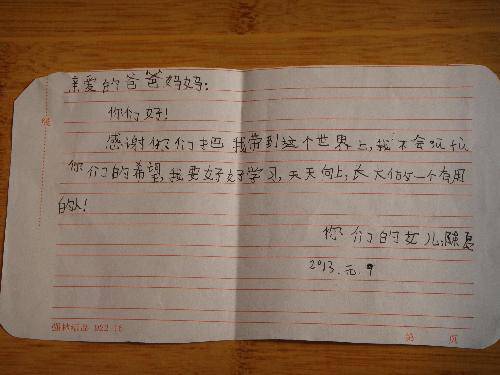 亲爱的爸爸妈妈:
你们好!
感谢你们把我带到这个世界上,我不会玩
你们的希望,我要好好学习,天天向上,长大做一个有用
的人!
你们的女儿:陈
2013.元.9
第 页